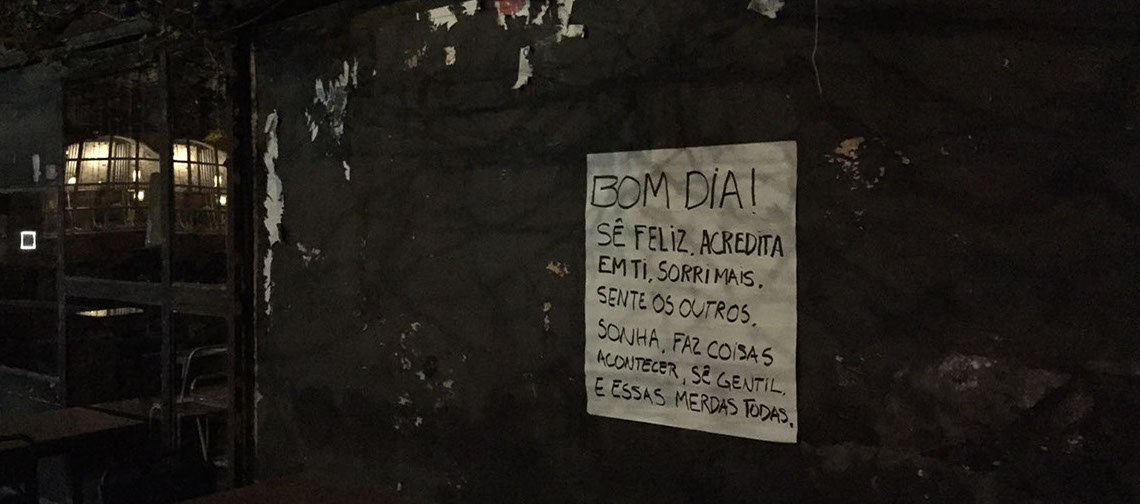 BOM DIA!
SÊ FELIZ. ACREDITA
EM TI, SORRI MAIS.
SENTE OS OUTROS.
SONHA. FAZ COISAS
ACONTECER, SÊ GENTIL,
E ESSAS MERDAS TODAS.